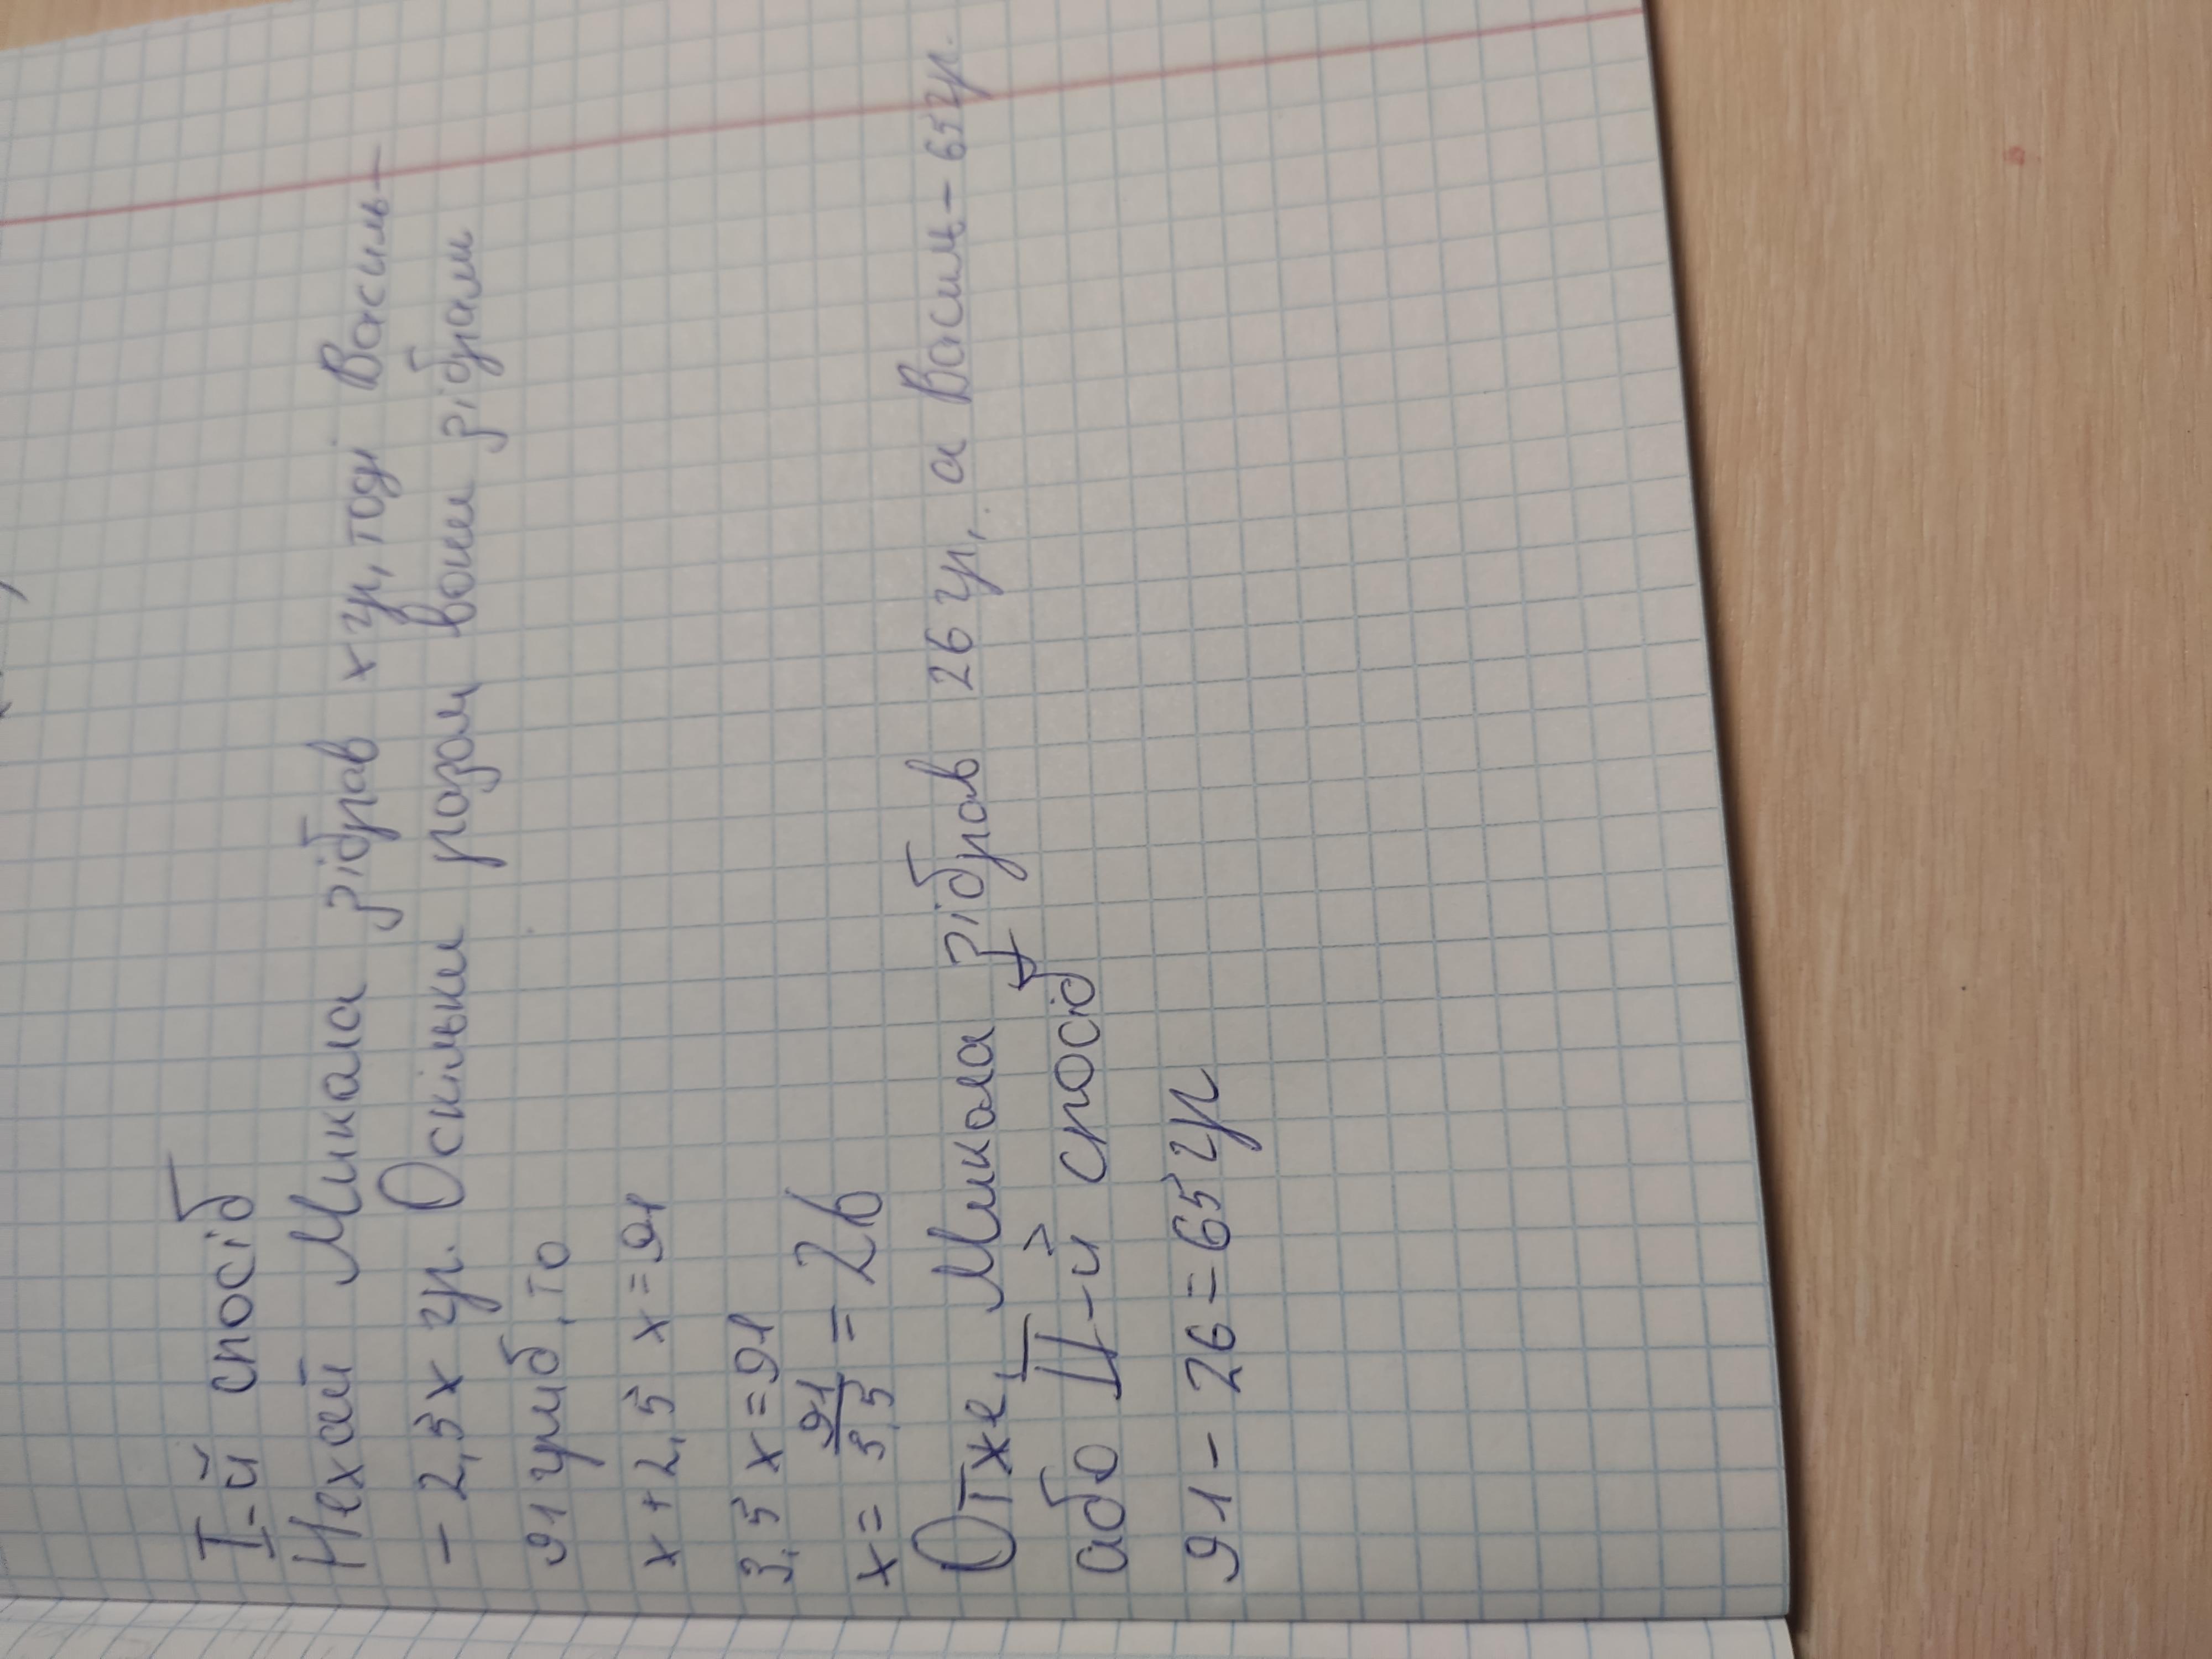 I-й спосіб
Нехай Микола зібрав x гр, тоді Василь -
- 2,5x гр. Оскільки разом вони зібрали
91 гриб, то
x + 2,5 x = 91
3,5 x = 91
x = 91/3,5 = 26
Отже, Микола зібрав 26 гр, а Василь - 65 гр.
або II-й спосіб
91 - 26 = 65 гр